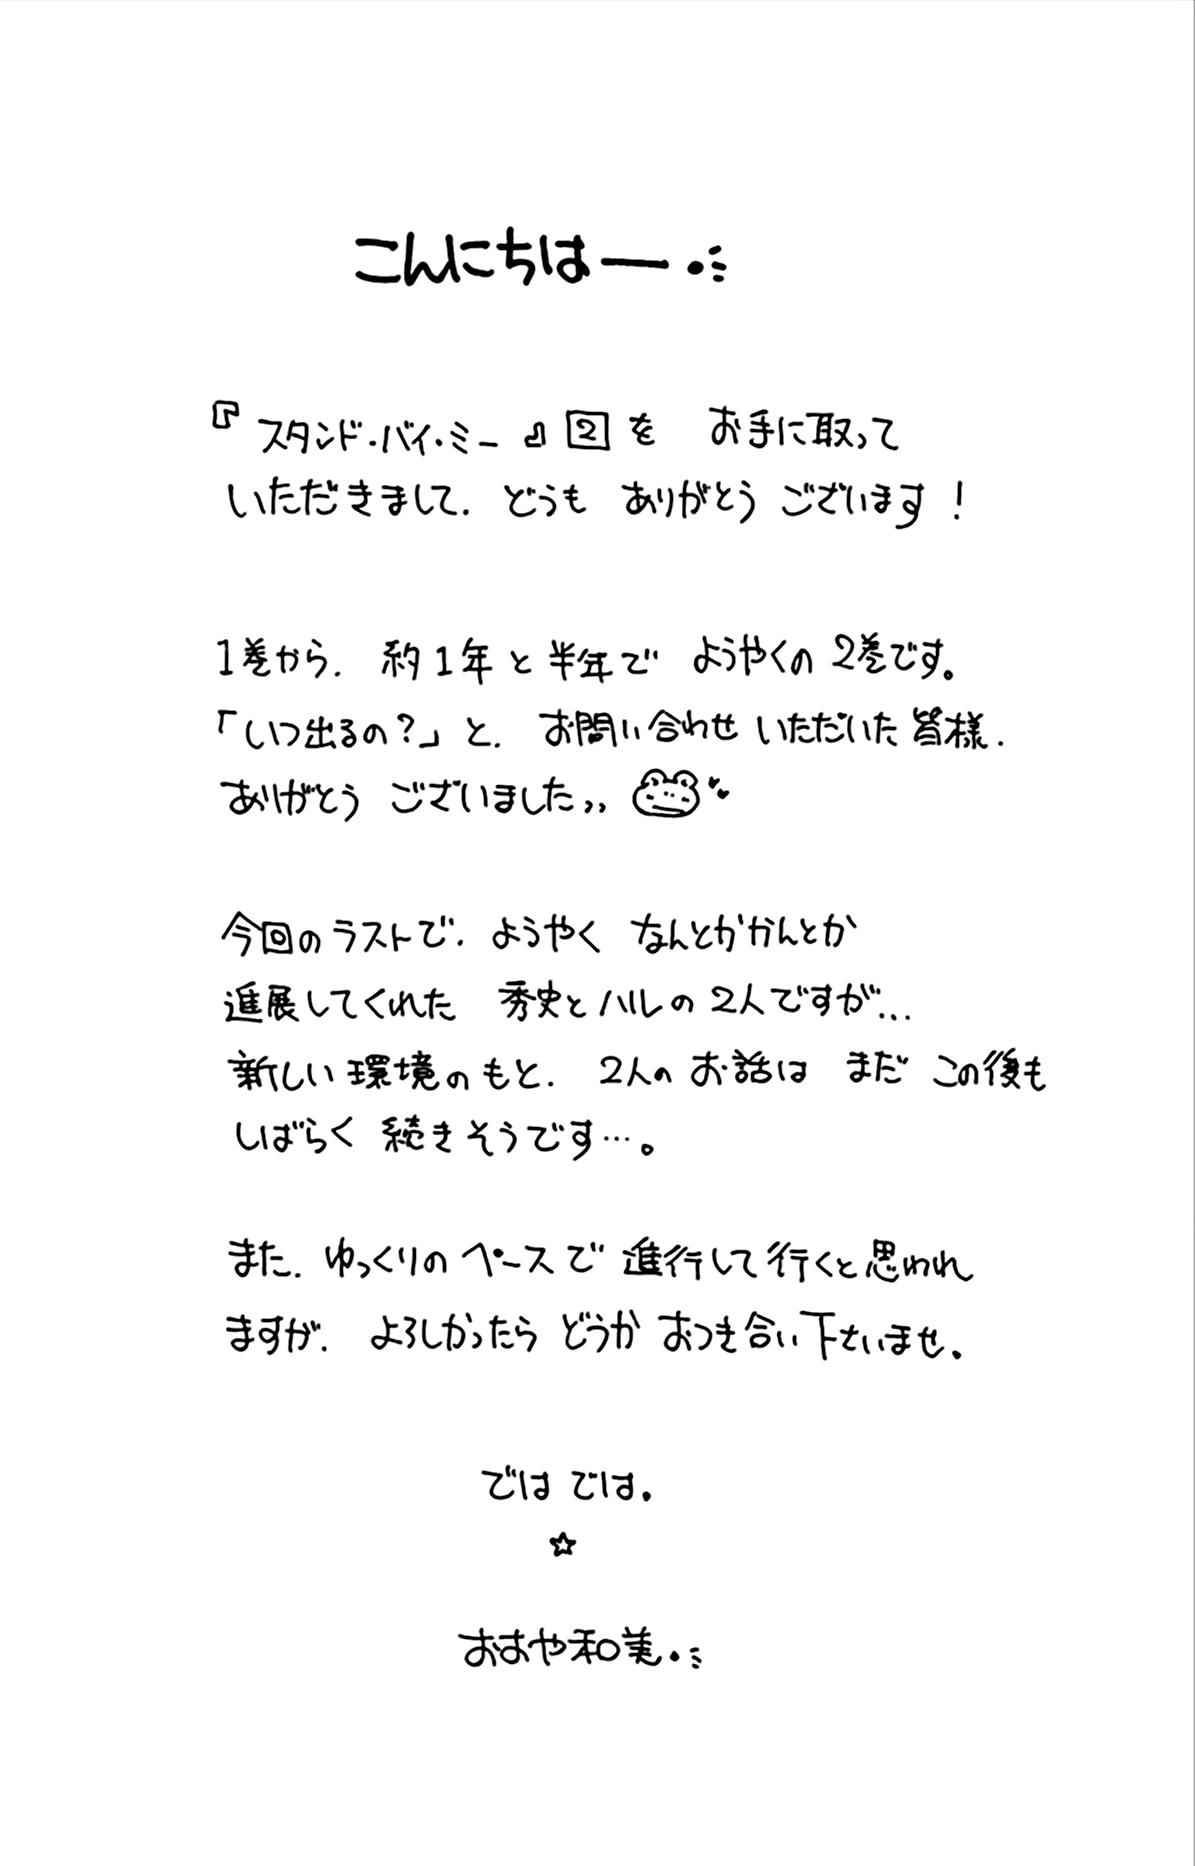 こんにちはー
『スタンド・バイ・ミー』2を お手に取って
いただきまして. どうも ありがとう ございます!
1巻から. 約1年と半年で ようやくの2巻です。
「いつ出るの?」と. お問い合わせ いただいた皆様.
ありがとう ございました,,
今回のラストで. ようやく なんとかかんとか
進展してくれた 秀史とハルの2人ですが...
新しい環境のもと. 2人の お話は まだ この後も
しばらく 続きそうです…。
また. ゆっくりの ペースで 進行して行くと思われ
ますが. よろしかったら どうか おつき合い下さいませ.
では では.
☆
おおや和美.